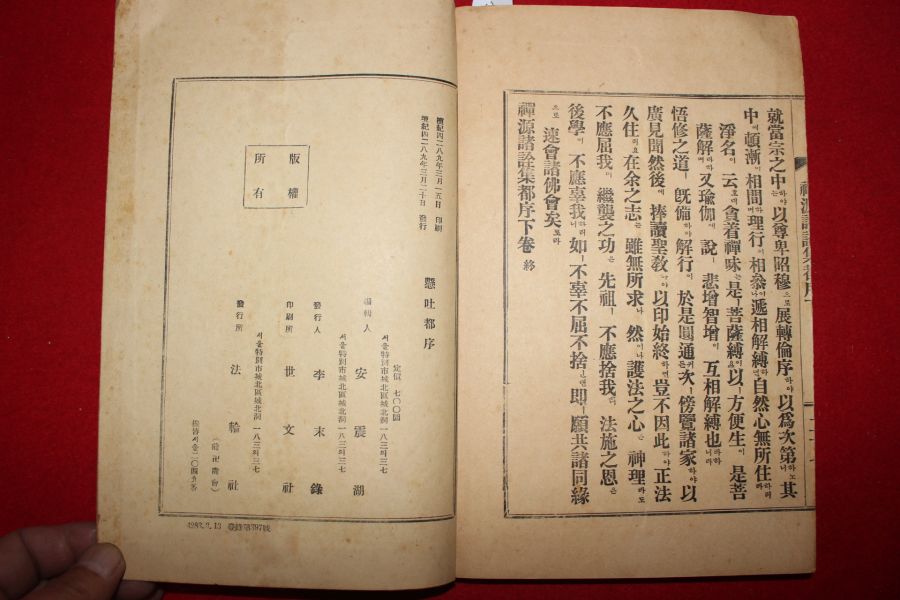 就當宗之中하야以尊卑昭穆으로展轉倫序하야以爲次第하노니其
中에頓漸이相間하며理行이相參하야遞相解縛하면自然心無所住하리라
淨名이云호대貪着禪味는是ㅣ菩薩縛이요以ㅣ方便生이是菩
薩解라하며又瑜伽에說ㅣ悲增智增이互相解縛也라하니라
悟修之道ㅣ旣備하야解行이於是圓通커든次ㅣ傍覽諸家하야以
廣見聞然後에捧讀聖敎하야以印始終하면豈不因此하야正法
久住리요在余之志는雖無所求나然이나護法之心은神理라도
不應屈我며繼襲之功은先祖ㅣ不應捨我며法施之恩은
後學이不應辜我하리니如ㅣ不辜不屈不捨인댄卽ㅣ願共諸同緣
으로速會諸佛會矣로라
禪源諸詮集都序下卷 終
檀紀四二八九年三月一五日 印刷
檀紀四二八九年三月二十日 發行
版權
所有
懸吐都序
定價 七〇〇圜
서울特別市城北區城北洞一八三의三七
編輯人 安震湖
서울特別市城北區城北洞一八三의三七
發行人 李末錄
印刷所 世文社
서울特別市城北區城北洞一八三의三七
發行所 法輪社